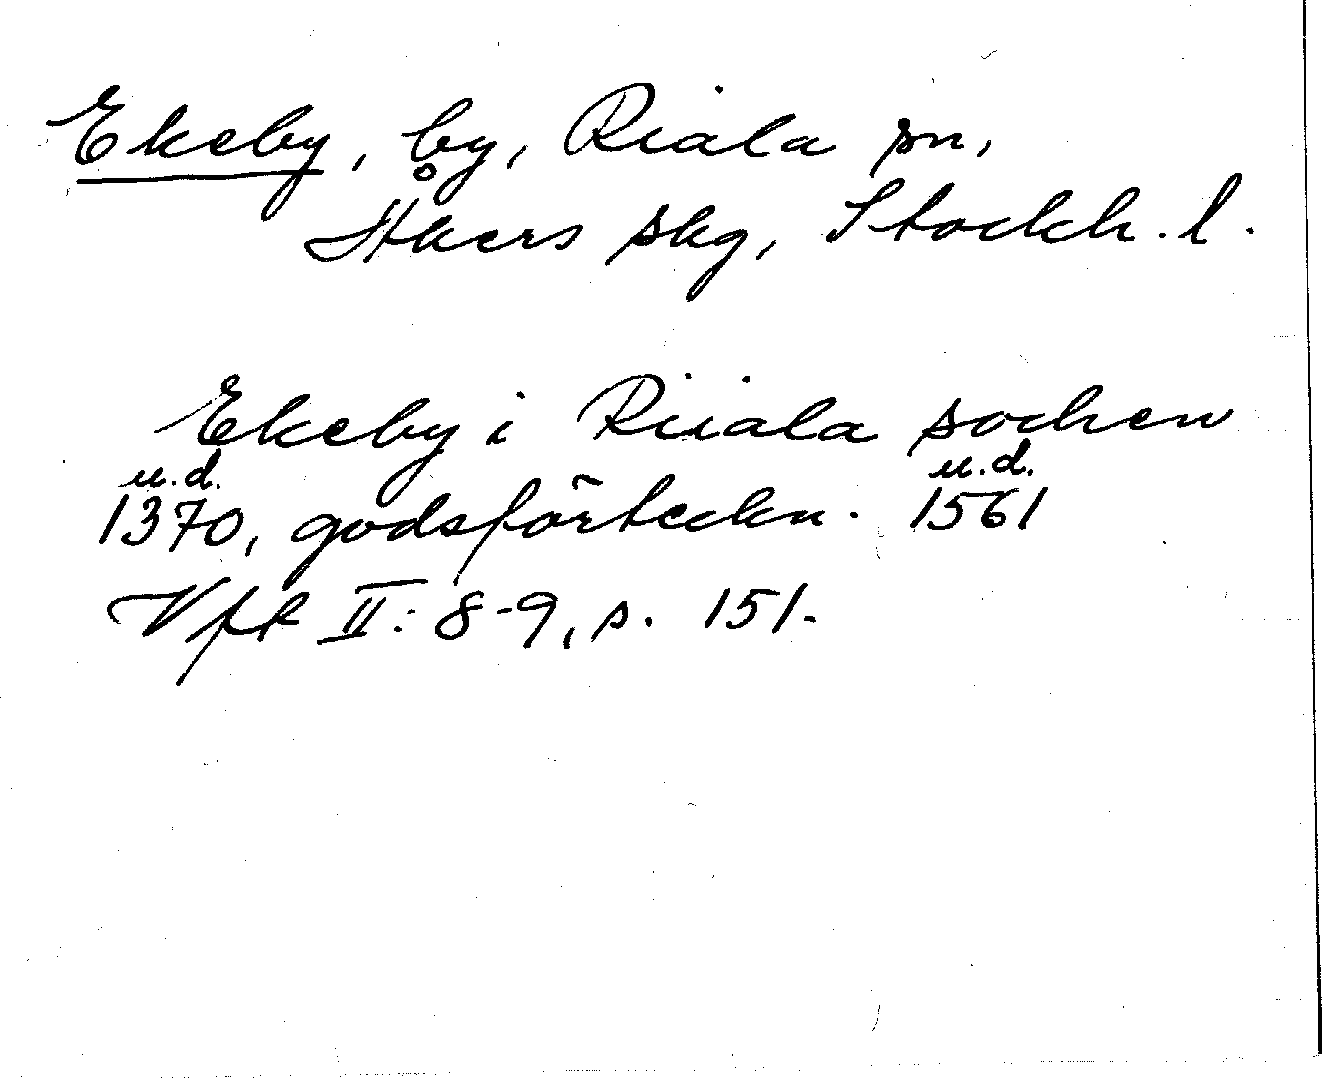 Ekeby, by, Riala sn,
Åkers skg, Stockh. l.
Ekeby i Riiala sochen
u.d. u.d.
1370, godsförteckn. 1561
Vft II: 8-9, s. 151.